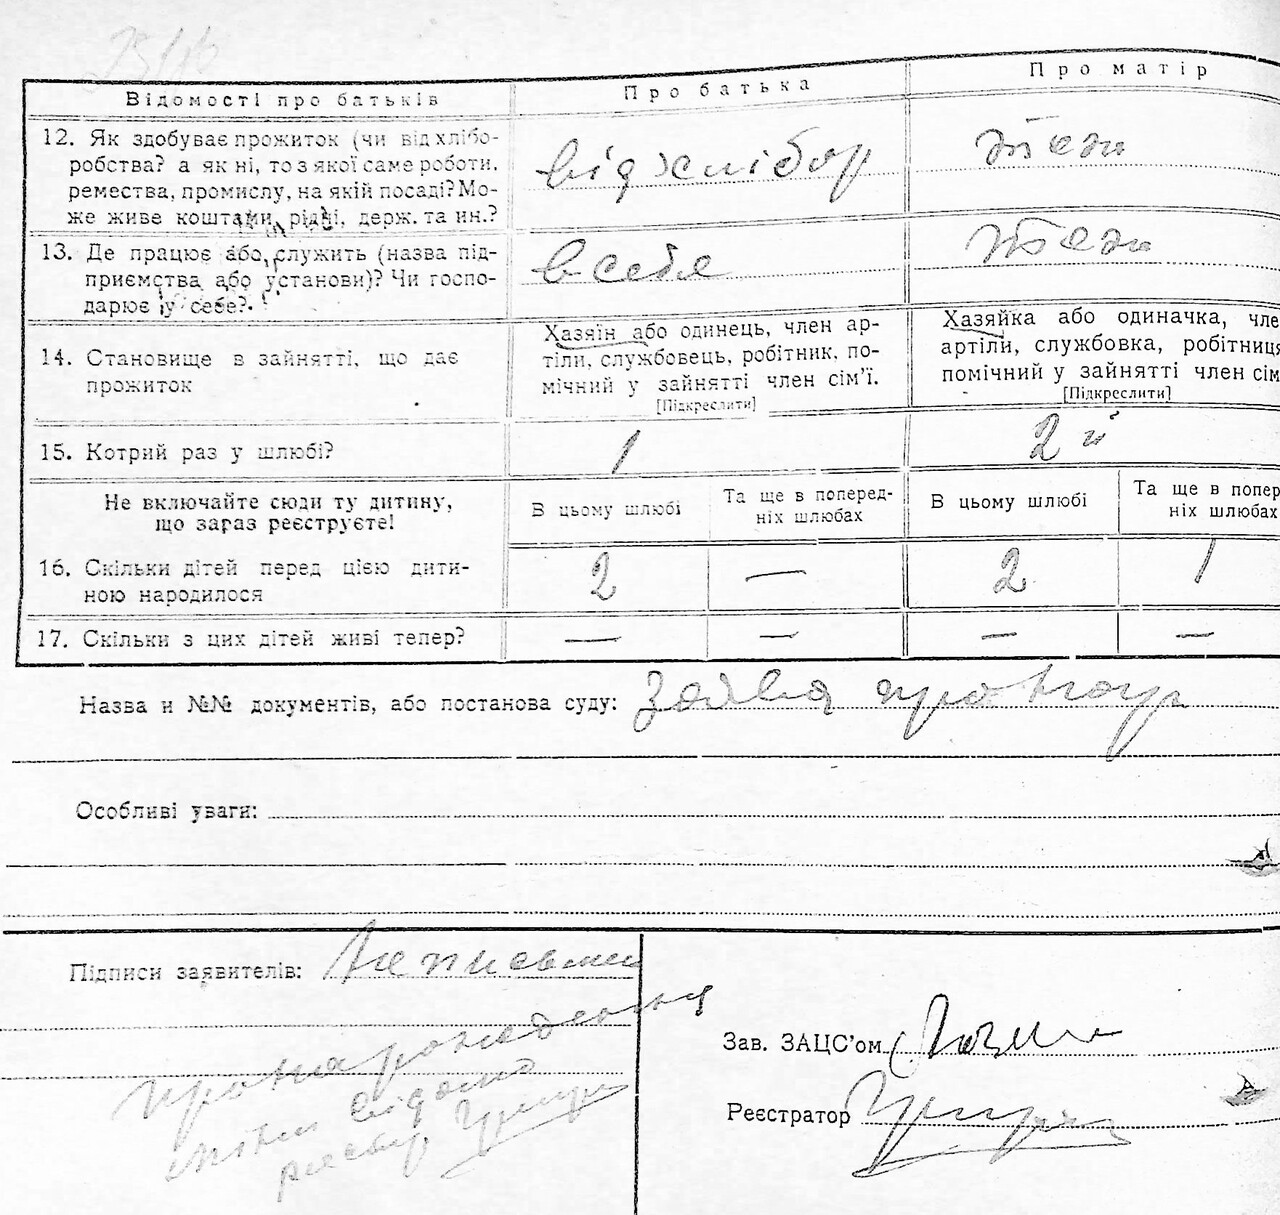 Відомості про батьків
Про батька
Про матір
12. Як здобуває прожиток (чи від хлібо-
робства? а як ні, то з якої саме роботи,
ремества, промислу, на якій посаді? Мо-
же живе коштами рідні, держ. та ин.?
від хлібор
теж
13. Де працює або служить (назва під-
приємства або установи)? Чи госпо-
дарює у себе?
в себе
теж
14. Становище в зайнятті, що дає
прожиток
Хазяїн або одинець, член ар-
тіли, службовець, робітник, по-
мічний у зайнятті член сім'ї.
[Підкреслити]
Хазяйка або одиначка, чле
артіли, службовка, робітниця
помічний у зайнятті член сім
[Підкреслити]
15. Котрий раз у шлюбі?
1
2й
Не включайте сюди ту дитину,
що зараз реєструєте!
В цьому шлюбі
Та ще в поперед-
ніх шлюбах
В цьому шлюбі
Та ще в попер
ніх шлюбах
16. Скільки дітей перед цією дити-
ною народилося
2
—
2
1
17. Скільки з цих дітей живі тепер?
—
—
—
—
Назва и №№ документів, або постанова суду: Заява про нар
Особливі уваги:
Підписи заявителів: Неписьмен
про народження
мені відомо
реєстр
Зав. ЗАЦС'ом
Реєстратор